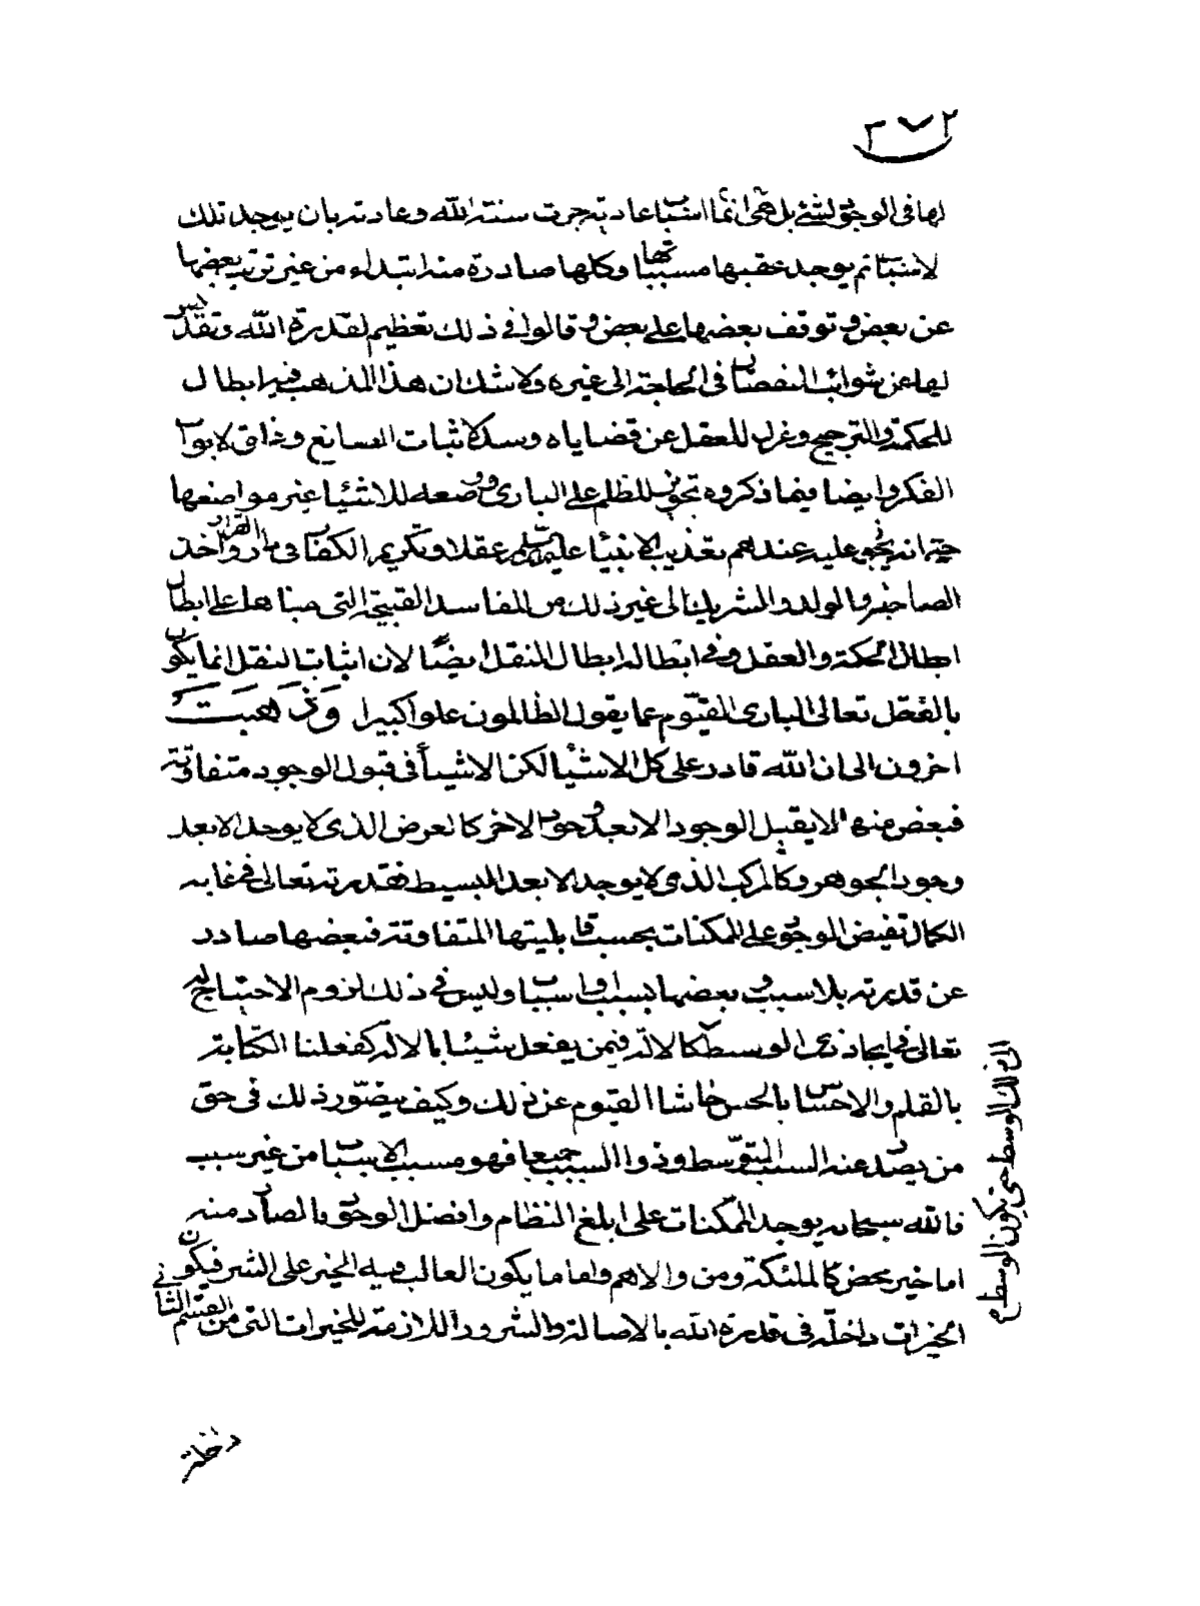 ٣٧٢
لها فى الوجود لشئ بل هى انما اسباب عادية جرت سنة الله وعادته بان يوجد تلك
لاسباب ثم يوجد عقبها مسبباتها وكلها صادرة منه ابتداء من غير ترتب بعضها
عن بعض وتوقف بعضها على بعض وقالوا فى ذلك تعظيم لقدرة الله وتقديس
لها عن شوائب النقصان فى الحاجة الى غيره ولا شك ان هذا المذهب فيه ابطال
للحكمة والترجيح وعزل للعقل عن قضاياه وسد لاثبات الصانع وغلق لابواب
الفكر وايضا فيما ذكروه تجويز للظلم على البارى ووضعه للاشياء غير مواضعها
حتى انه يجوز عليه عندهم تعذيب الانبياء عليهم السلم عقلا وتكريم الكفار فى دار القرار واخذ
الصاحبة والولد والشريك الى غير ذلك من المفاسد القبيحة التى مبناها على ابطال
ابطال الحكمة والعقل وفى ابطاله ابطال النقل ايضًا لان اثبات النقل انما يكون
بالعقل تعالى البارى القيّوم عما يقول الظالمون علوا كبيرا وَذَهَبَت
اخرون الى ان الله قادر على كل الاشياء لكن الاشياء فى قبول الوجود متفاوتة
فبعض منها لا يقبل الوجود الا بعد وجود الاخر كالعرض الذى لا يوجد الا بعد
وجود الجوهر وكالمركب الذى لا يوجد الا بعد البسيط فقدرته تعالى فى غاية
الكمال تفيض الوجود على الممكنات بحسب قابليتها المتفاوتة فبعضها صادر
عن قدرته بلا سبب وبعضها بسبب او اسباب وليس فى ذلك لزوم الاحتياج له
تعالى فى ايجاد ذى الوسط كالالة فيمن يفعل شيئا بالالة كفعلنا الكتابة
بالقلم والاحساس بالحس حاشا القيوم عن ذلك وكيف يتصّور ذلك فى حق
من يصدر عنه السبب المتوّسط وذو السبب جميعا فهو مسبب الاسباب من غير سبب
فالله سبحانه يوجد الممكنات على ابلغ النظام وافضل الوجود فالصادر منه
اما خير محض كالملئكة ومن والاهم واما ما يكون الغالب فيه الخير على الشر فيكون
الخيرات داخلة فى قدرة الله بالاصالة والشرور اللازمة للخيرات التى من القسم الثانى
داخلة
الى ذلك الوسط حتى يكون الوسط